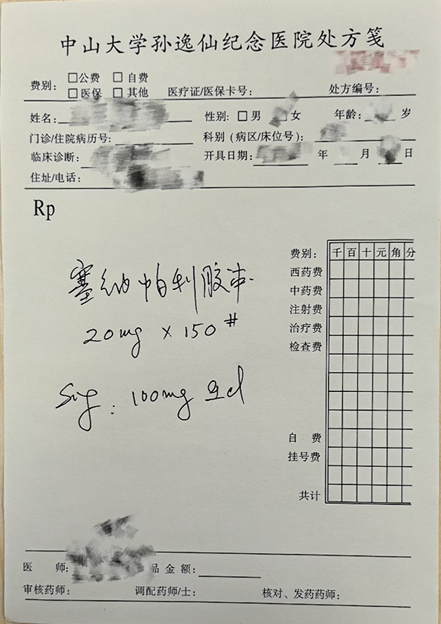 中山大学孙逸仙纪念医院处方笺
费别: □公费 □自费
□医保 □其他 医疗证/医保卡号: 处方编号:
姓名: 性别: □男 女 年龄: 岁
门诊/住院病历号: 科别(病区/床位号):
临床诊断: 开具日期: 年 月 日
住址/电话:
Rp
费别: 千 百 十 元 角 分
西药费
中药费
注射费
治疗费
检查费
塞纳帕利胶囊
20mg × 150#
Sig: 100mg qd
自 费
挂号费
共计
医 师: 品金额:
审核药师: 调配药师/士: 核对、发药药师: